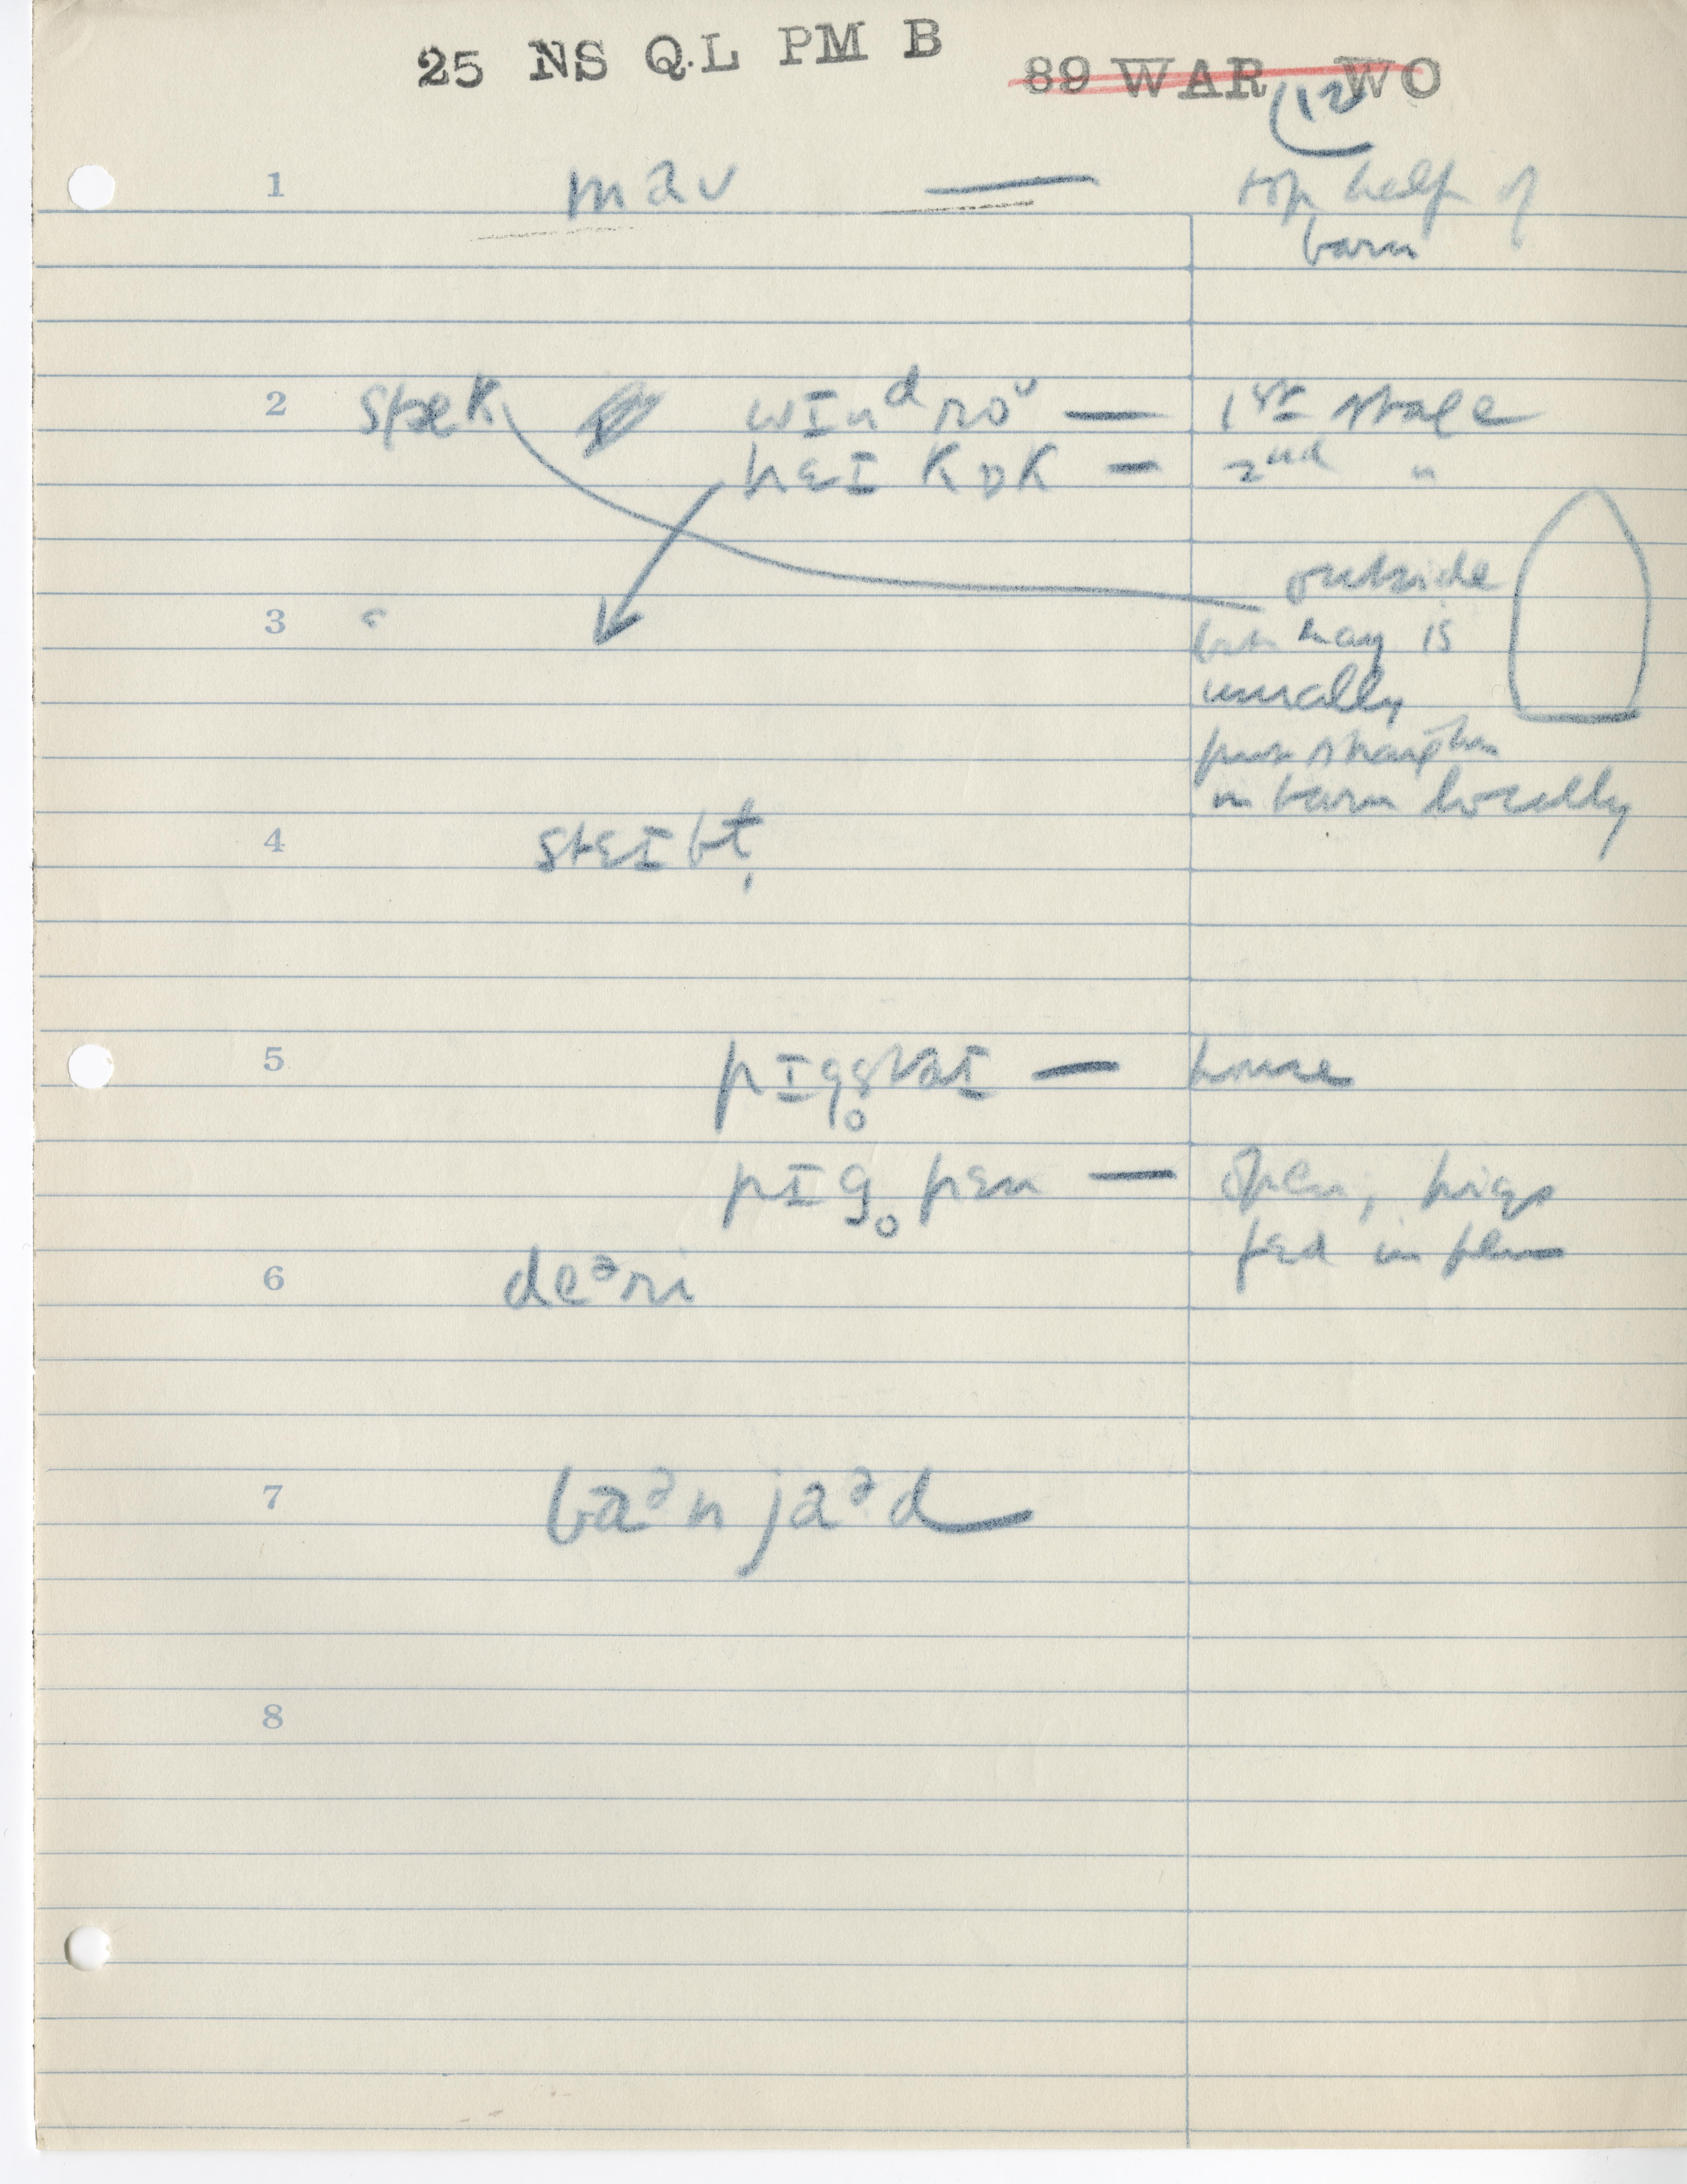 25 NS Q.L PM B 89 WAR WO
(12
1 maʊ — top half of
barn
2 stæk wɪnᵈroᵁ — 1st stage
hɛɪ kɒk — 2nd "
outside
3 but hay is
usually
put straight
in barn locally
4 stɛɪbɫ̩
5 pɪg̥staɪ — house
pɪg̥ pɛn — open, pigs
fed in pen
6 deᵊri
7 baᵊn jaᵊd
8